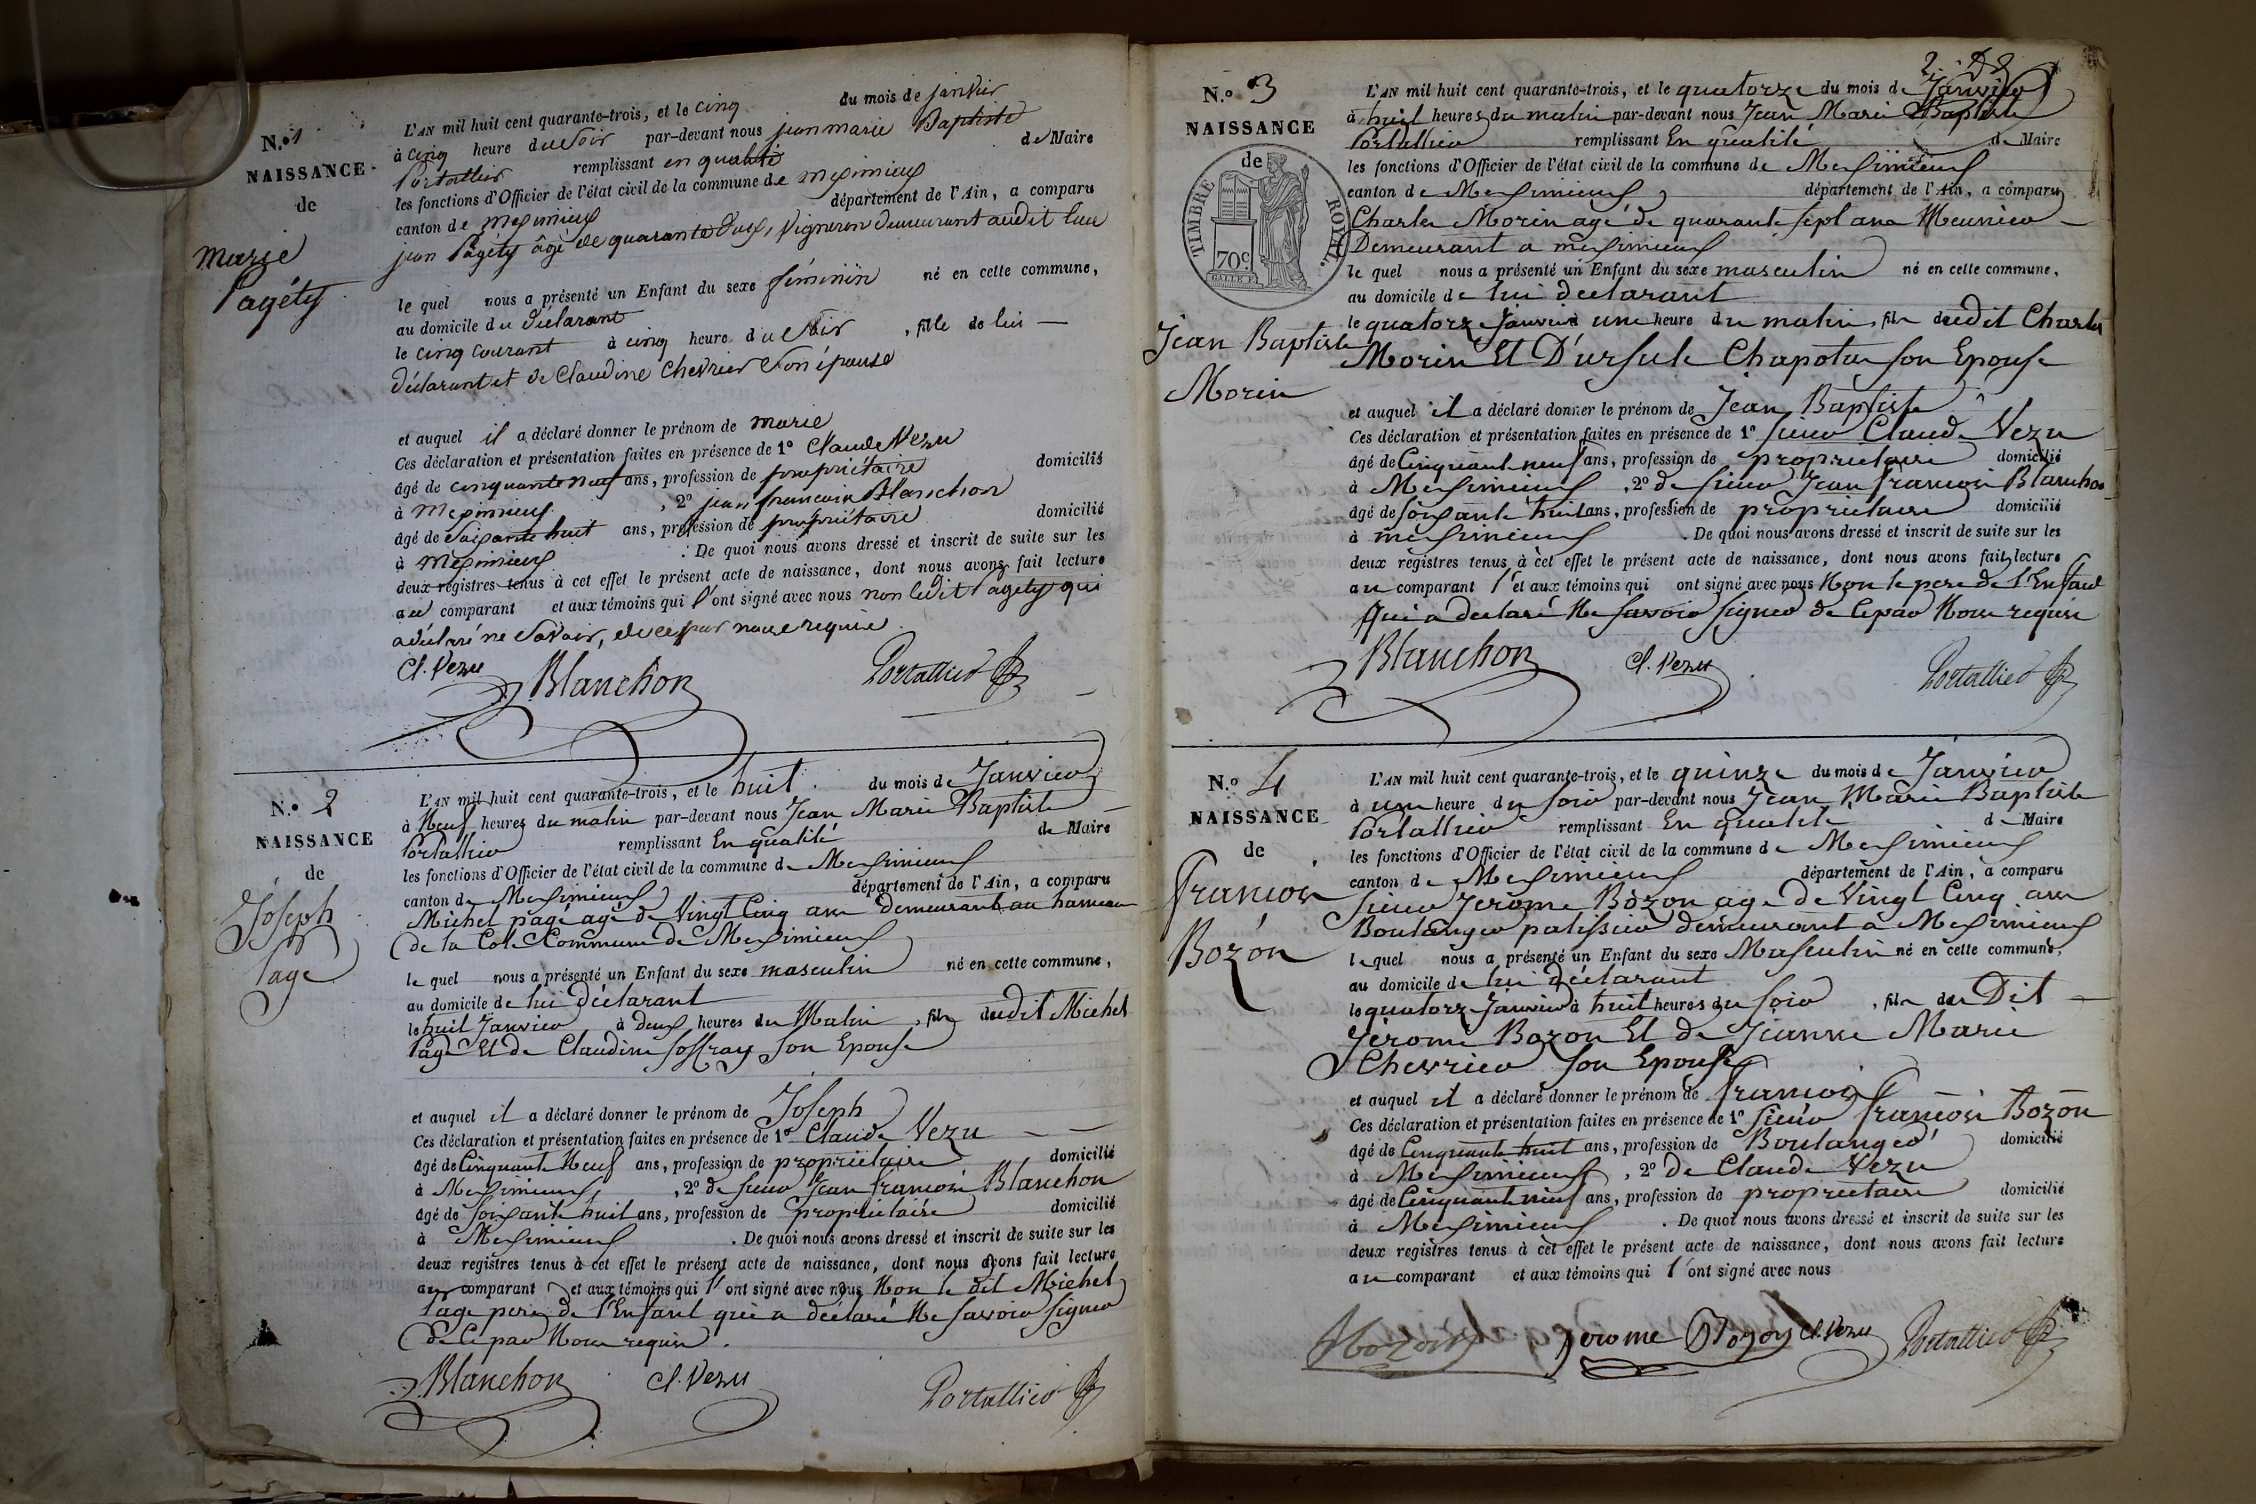 N.o 1
NAISSANCE
de
marie
Pagéty
L'AN mil huit cent quarante-trois, et le cinq du mois de janvier
à cinq heure du soir par-devant nous jean marie Baptiste
Portallier remplissant en qualité de Maire
les fonctions d'Officier de l'état civil de la commune de meximieux
canton de meximieux département de l'Ain, a comparu
jean Pagéty âgé de quarante deux, vigneron demeurant audit lieu
le quel nous a présenté un Enfant du sexe féminin né en cette commune,
au domicile du déclarant
le cinq courant à cinq heure du soir, fille de lui
déclarant et de Claudine Chevrier son épouse
et auquel il a déclaré donner le prénom de marie
Ces déclaration et présentation faites en présence de 1º Claude Vezu
âgé de cinquante neuf ans, profession de propriétaire domicilié
à meximieux, 2º jean francois Blanchon
âgé de soixante huit ans, profession de propriétaire domicilié
à meximieux. De quoi nous avons dressé et inscrit de suite sur les
deux registres tenus à cet effet le présent acte de naissance, dont nous avons fait lecture
au comparant et aux témoins qui l'ont signé avec nous non ledit Pagéty qui
a déclaré ne savoir, de ce par nous requis
Cl. Vezu Blanchon Portallier
N.o 2
NAISSANCE
de
Joseph
Page
L'AN mil huit cent quarante-trois, et le huit du mois de Janvier
à Neuf heures du matin par-devant nous Jean Marie Baptiste
Portallier remplissant En qualité de Maire
les fonctions d'Officier de l'état civil de la commune de Meximieux
canton de Meximieux département de l'Ain, a comparu
Michel page agé de Vingt Cinq ans demeurant au hameau
de la Cote Commune de Meximieux
le quel nous a présenté un Enfant du sexe masculin né en cette commune,
au domicile de lui déclarant
le huit Janvier à deux heures du Matin, fils dudit Michel
Page Et de Claudine Joffray Son Epouse
et auquel il a déclaré donner le prénom de Joseph
Ces déclaration et présentation faites en présence de 1º Claude Vezu
âgé de Cinquante Neuf ans, profession de propriétaire domicilié
à Meximieux, 2º de sieur Jean francois Blanchon
âgé de soixante huit ans, profession de propriétaire domicilié
à Meximieux. De quoi nous avons dressé et inscrit de suite sur les
deux registres tenus à cet effet le présent acte de naissance, dont nous avons fait lecture
au comparant et aux témoins qui l'ont signé avec nous Non le dit Michel
Page pere de l'Enfant qui a déclaré Ne savoir signer
de Ce par Nous requis.
Blanchon Cl. Vezu Portallier
N.o 3
NAISSANCE
de
TIMBRE ROYAL.
70c
Jean Baptiste
Morin
L'AN mil huit cent quarante-trois, et le quatorze du mois de Janvier
à huit heures du matin par-devant nous Jean Marie Baptiste
Portallier remplissant En qualité de Maire
les fonctions d'Officier de l'état civil de la commune de Meximieux
canton de Meximieux département de l'Ain, a comparu
Charles Morin agé de quarante sept ans Meunier
Demeurant a meximieux
le quel nous a présenté un Enfant du sexe masculin né en cette commune,
au domicile de lui declarant
le quatorze Janvier à une heure du matin, fils dudit Charles
Morin Et D'ursule Chapotar son Epouse
et auquel il a déclaré donner le prénom de Jean Baptiste
Ces déclaration et présentation faites en présence de 1º sieur Claude Vezu
âgé de Cinquante neuf ans, profession de proprietaire domicilié
à Meximieux, 2º de sieur Jean francois Blanchon
âgé de soixante huit ans, profession de proprietaire domicilié
à meximieux. De quoi nous avons dressé et inscrit de suite sur les
deux registres tenus à cet effet le présent acte de naissance, dont nous avons fait lecture
au comparant et aux témoins qui l'ont signé avec nous Non le pere de l'Enfant
qui a declaré Ne savoir signer de Ce par Nous requis
Blanchon Cl. Vezu Portallier
N.o 4
NAISSANCE
de
Francois
Bozon
L'AN mil huit cent quarante-trois, et le quinze du mois de Janvier
à une heure du soir par-devant nous Jean Marie Baptiste
Portallier remplissant En qualité de Maire
les fonctions d'Officier de l'état civil de la commune de Meximieux
canton de Meximieux département de l'Ain, a comparu
sieur Jerome Bozon age de Vingt Cinq ans
Boulanger patissier demeurant a Meximieux
le quel nous a présenté un Enfant du sexe Masculin né en cette commune,
au domicile de lui déclarant
le quatorze Janvier à huit heures du soir, fils du Dit
Jérome Bozon Et de Jeanne Marie
Chevrier son Epouse
et auquel il a déclaré donner le prénom de francois
Ces déclaration et présentation faites en présence de 1º sieur francois Bozon
âgé de Cinquante huit ans, profession de Boulanger domicilié
à Meximieux, 2º de Claude Vezu
âgé de Cinquante neuf ans, profession de proprietaire domicilié
à Meximieux. De quoi nous avons dressé et inscrit de suite sur les
deux registres tenus à cet effet le présent acte de naissance, dont nous avons fait lecture
au comparant et aux témoins qui l'ont signé avec nous
Bozon Jerome Bozon Cl. Vezu Portallier